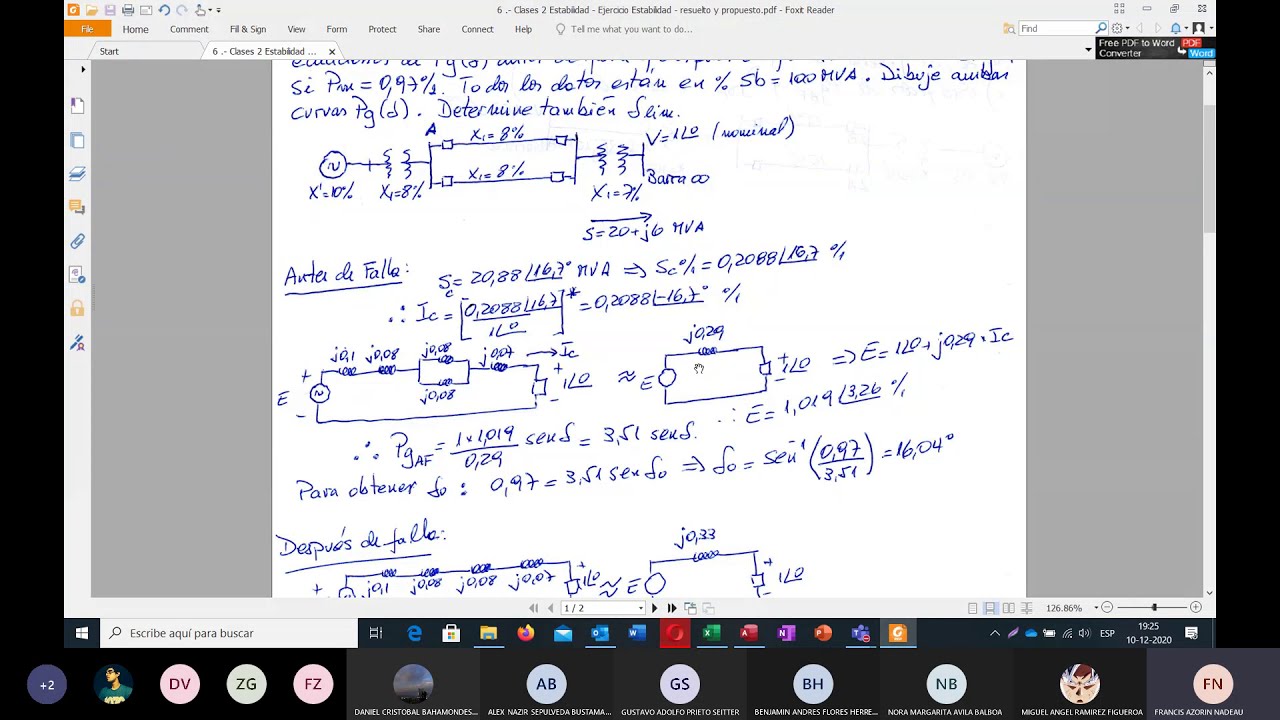 6 .- Clases 2 Estabilidad - Ejercicio Estabilidad - resuelto y propuesto.pdf - Foxit Reader
File Home Comment View Form Protect Share Connect Help Tell me what you want to do... Find
Start 6 .- Clases 2 Estabilidad ...
Free PDF to Word PDF
Converter Word
si Pm = 0,97 %1. Todos los datos están en % Sb = 100 MVA. Dibuje ambas
curvas Pg(δ). Determine también δlim.
A X1 = 8% V = 1∠0 (nominal)
X1 = 8% Barra ∞
X' = 10% X1 = 8% X1 = 7%
S = 20 + j6 MVA
Antes de Falla: Sc = 20,88∠16,7° MVA ⇒ Sc %1 = 0,2088∠16,7 %1
∴ Ic = [0,2088∠16,7 / 1∠0]* = 0,2088∠-16,7° %1
j0,1 j0,08 j0,08 j0,07 → Ic j0,29
E + - j0,08 + 1∠0 - ≈ E + 1∠0 - ⇒ E = 1∠0 + j0,29 * Ic
∴ E = 1,019∠3,26 %1
∴ PgAF = 1x1,019 / 0,29 senδ = 3,51 senδ.
Para obtener δo : 0,97 = 3,51 senδo ⇒ δo = sen⁻¹(0,97 / 3,51) = 16,04°
Después de falla: j0,33
+ j0,1 j0,08 j0,08 j0,07 + 1∠0 ≈ E + 1∠0 -
1 / 2 126.86%
Escribe aquí para buscar ESP 19:25
10-12-2020
+2 DV ZG FZ AB GS BH NB FN
DANIEL CRISTOBAL BAHAMONDES... ALEX NAZIR SEPULVEDA BUSTAMA... GUSTAVO ADOLFO PRIETO SEITTER BENJAMIN ANDRES FLORES HERRE... NORA MARGARITA AVILA BALBOA MIGUEL ANGEL RAMIREZ FIGUEROA FRANCIS AZORIN NADEAU